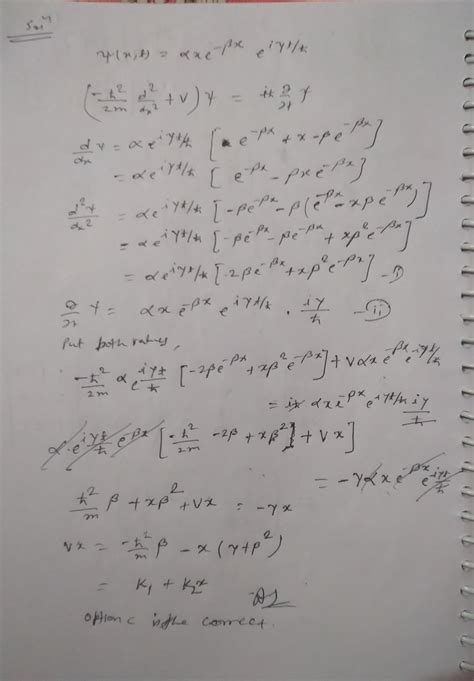 Soln
ψ(x,t) = αxe^{-βx} e^{iγt/ħ}
(-ħ²/2m d²/dx² + V) ψ = iħ ∂/∂t ψ
d/dx ψ = αe^{iγt/ħ} [e^{-βx} + x - βe^{-βx}]
= αe^{iγt/ħ} [e^{-βx} - βxe^{-βx}]
d²ψ/dx² = αe^{iγt/ħ} [-βe^{-βx} - β(e^{-βx} - xβe^{-βx})]
= αe^{iγt/ħ} [-βe^{-βx} - βe^{-βx} + xβ²e^{-βx}]
= αe^{iγt/ħ} [-2βe^{-βx} + xβ²e^{-βx}] - (i)
∂/∂t ψ = αxe^{-βx} e^{iγt/ħ} · iγ/ħ - (ii)
Put both values,
-ħ²/2m αe^{iγt/ħ} [-2βe^{-βx} + xβ²e^{-βx}] + Vαxe^{-βx}e^{iγt/ħ}
= iħ αxe^{-βx} e^{iγt/ħ} iγ/ħ
αe^{iγt/ħ} e^{-βx} [-ħ²/2m -2β + xβ²] + Vx]
= -γαxe^{-βx}e^{iγt/ħ}
ħ²/m β + xβ² + Vx = -γx
Vx = -ħ²/m β - x(γ+β²)
= K₁ + K₂x
option c is the correct.